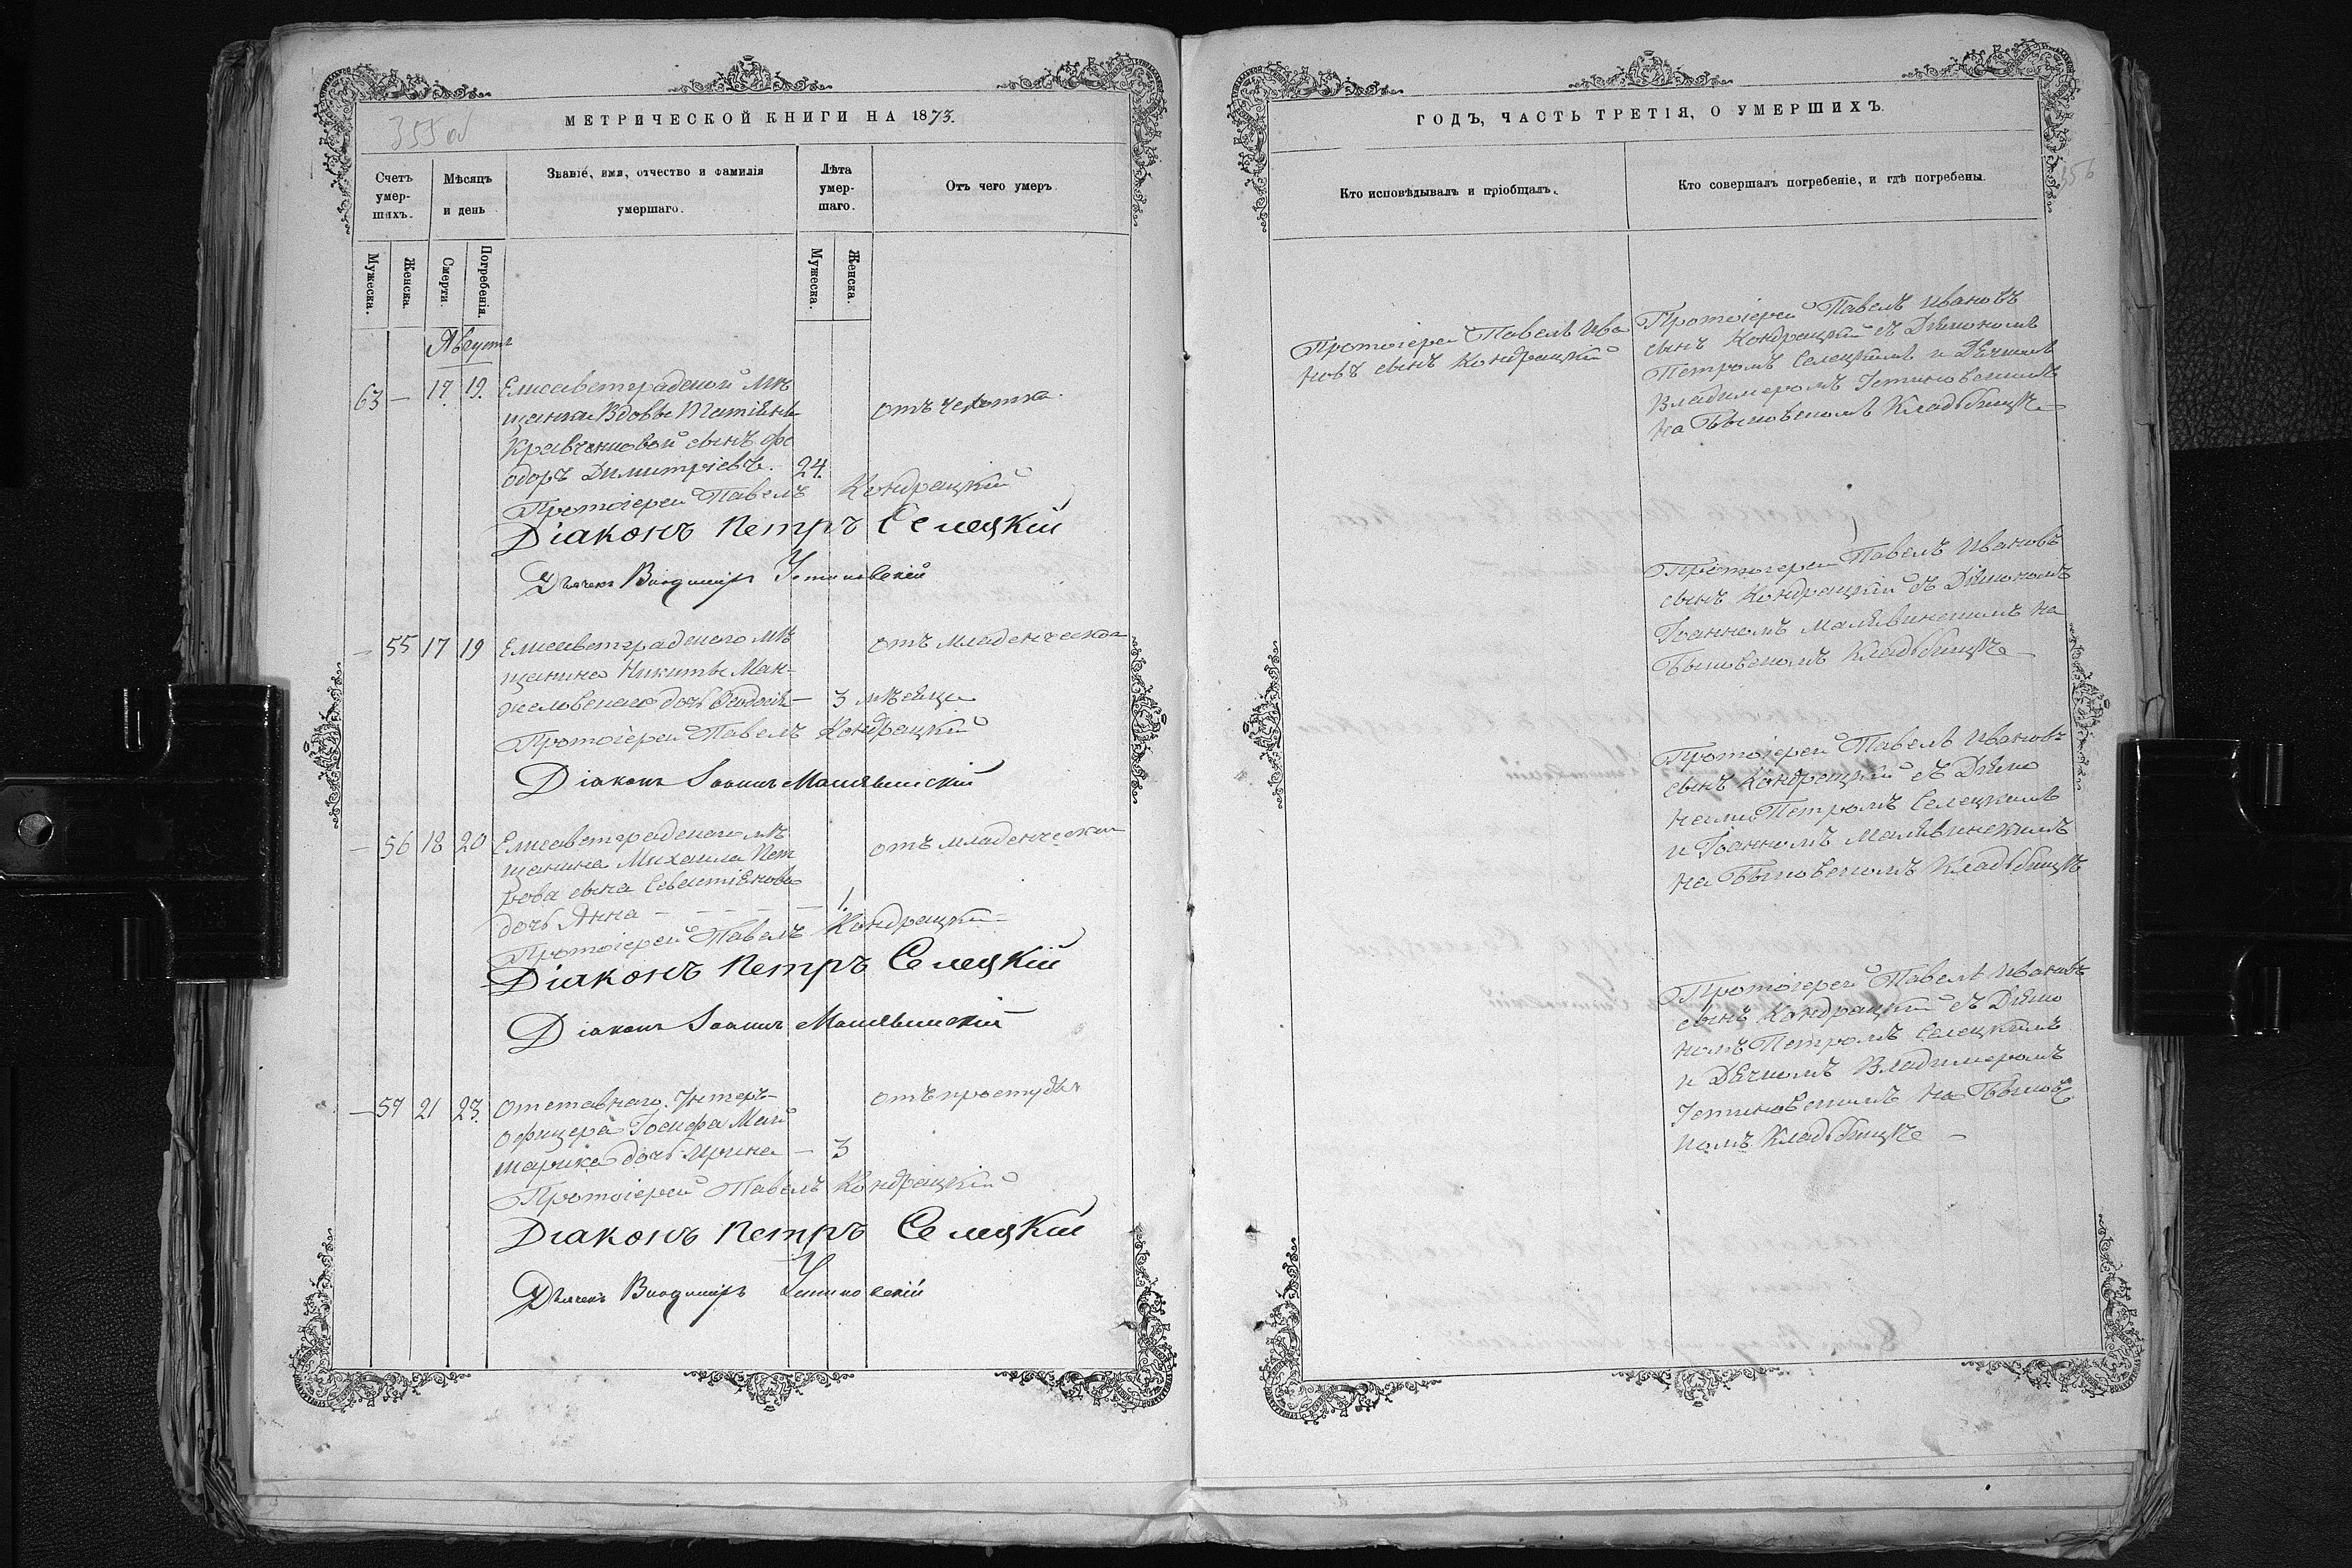 355 об
МЕТРИЧЕСКОЙ КНИГИ НА 1873.
Счетъ умер-шихъ.
Мѣсяцъ и день
Званіе, имя, отчество и фамилія умершаго.
Лѣта умер-шаго.
Отъ чего умеръ.
Мужеска.
Женска.
Смерти.
Погребенія.
Мужеска.
Женска.
Августъ
63 — 17. 19. Елисаветградской мѣ
щанки Вдовы Татіяны отъ чахотки.
Кравченковой сынъ Фе
одоръ Димитріевъ. 24.
Протоіерей Павелъ Кондрацкій
Діаконъ Петръ Селецкій
Дьячекъ Владиміръ Устиновскій
— 55 17 19 Елисаветградскаго мѣ отъ младенческой
щанина Никиты Ман-
желовскаго дочь — 3 мѣсяца
Протоіерей Павелъ Кондрацкій
Діаконъ Іоаннъ Малявинскій
— 56 18 20 Елисаветградскаго мѣ отъ младенческой
щанина Михаила Пет
рова сына Севастіянова
дочь Анна — — — — — 1.
Протоіерей Павелъ Кондрацкій
Діаконъ Петръ Селецкій
Діаконъ Іоаннъ Малявинскій
— 57 21 23. Отставнаго Унтеръ- отъ простуды
Офицера Іосифа Май
шарика дочь Ирина — 3
Протоіерей Павелъ Кондрацкій
Діаконъ Петръ Селецкій
Дьячекъ Владиміръ Устиновскій
ГОДЪ, ЧАСТЬ ТРЕТІЯ, О УМЕРШИХЪ.
356
Кто исповѣдывалъ и пріобщалъ.
Кто совершалъ погребеніе, и гдѣ погребены.
Протоіерей Павелъ Ива
новъ сынъ Кондрацкій
Протоіерей Павелъ Ивановъ
сынъ Кондрацкій съ Діякономъ
Петромъ Селецкимъ и Дячкомъ
Владимеромъ Устиновскимъ
на Быковскомъ Кладьбищѣ
Протоіерей Павелъ Ивановъ
сынъ Кондрацкій съ Діякономъ
Іоанномъ Малявинскимъ на
Быковскомъ Кладьбищѣ —
Протоіерей Павелъ Ивановъ
сынъ Кондрацкій съ Діяко
нами Петромъ Селецкимъ
и Іоанномъ Малявинскимъ
на Быковскомъ Кладьбищѣ
Протоіерей Павелъ Ивановъ
сынъ Кондрацкій съ Діяко
номъ Петромъ Селецкимъ
и Дячкомъ Владимеромъ
Устиновскимъ на Быковс
комъ Кладьбищѣ —